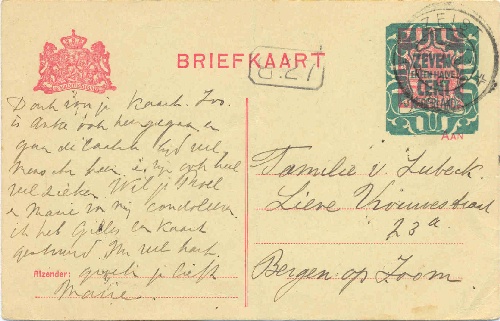 BRIEFKAART
8.27
ZEIS
ZEVEN
EN EEN HALVE
CENT
NEDERLAND
AAN
Dank voor je kaart. Zoo.
is Anke ook heengegaan en
gaan de laatste tijd veel
menschen heen. er zijn ook heel
veel zieken. Wil je
Marie van mij condoleeren
ik heb een kaart
gestuurd. veel hart.
Afzender: groeten je liefh
Marie.
Familie v. Lubeck.
Lieve Vrouwestraat
23a.
Bergen op Zoom.